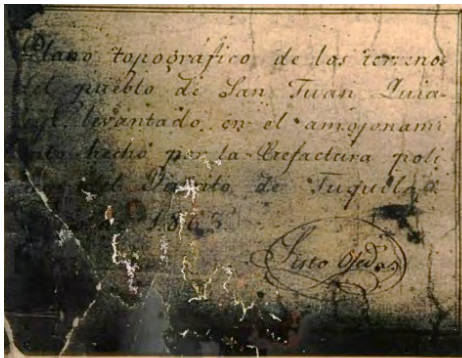 Plano topográfico de los terreno
del pueblo de San Juan Quia-
levantado en el amojonami
ento hecho por la Prefactura poli
del de Juquila
1863
Sisto Ojeda